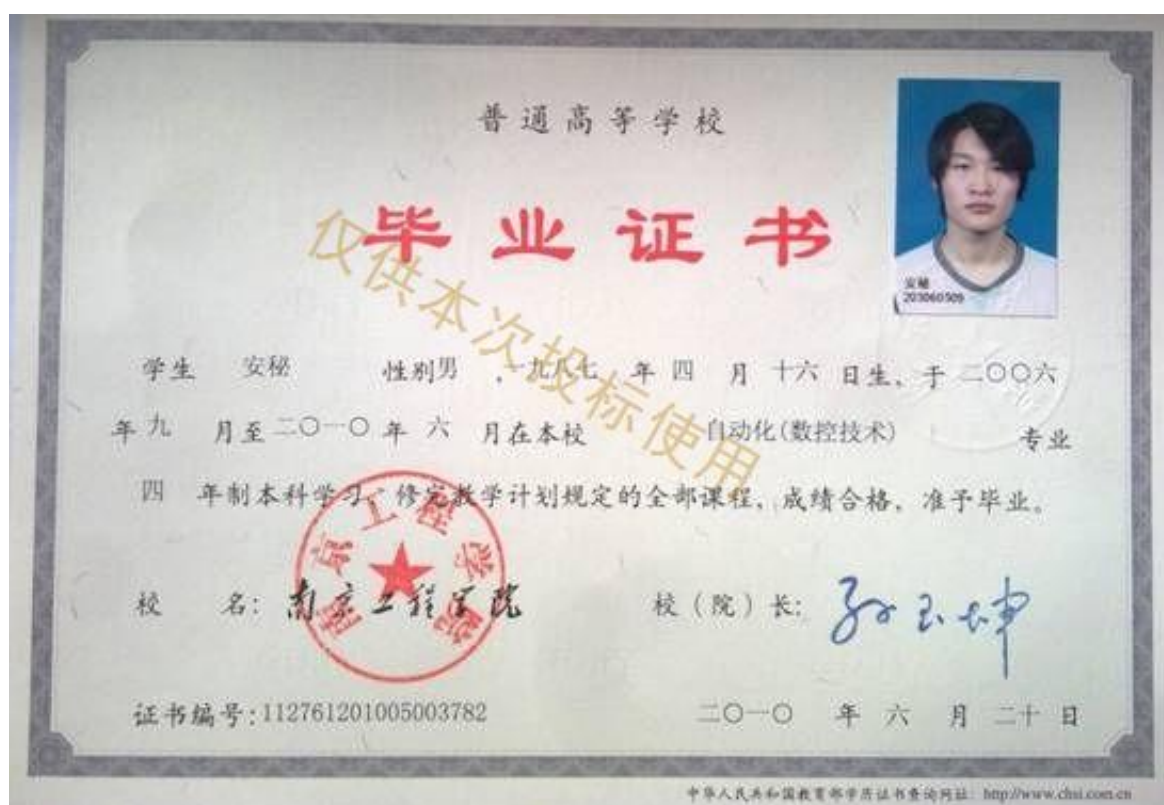 普通高等学校
毕业证书
仅供本次投标使用
安秘
203060509
学生 安秘 性别男 ,一九八七 年 四 月 十六 日生、于 二〇〇六
年 九 月至 二〇一〇 年 六 月在本校 自动化(数控技术) 专业
四 年制本科学习,修完教学计划规定的全部课程,成绩合格,准予毕业。
南京工程学院
校 名: 南京工程学院 校(院)长: 孙玉坤
证书编号:112761201005003782 二〇一〇 年 六 月 二十 日
中华人民共和国教育部学历证书查询网址: http://www.chsi.com.cn